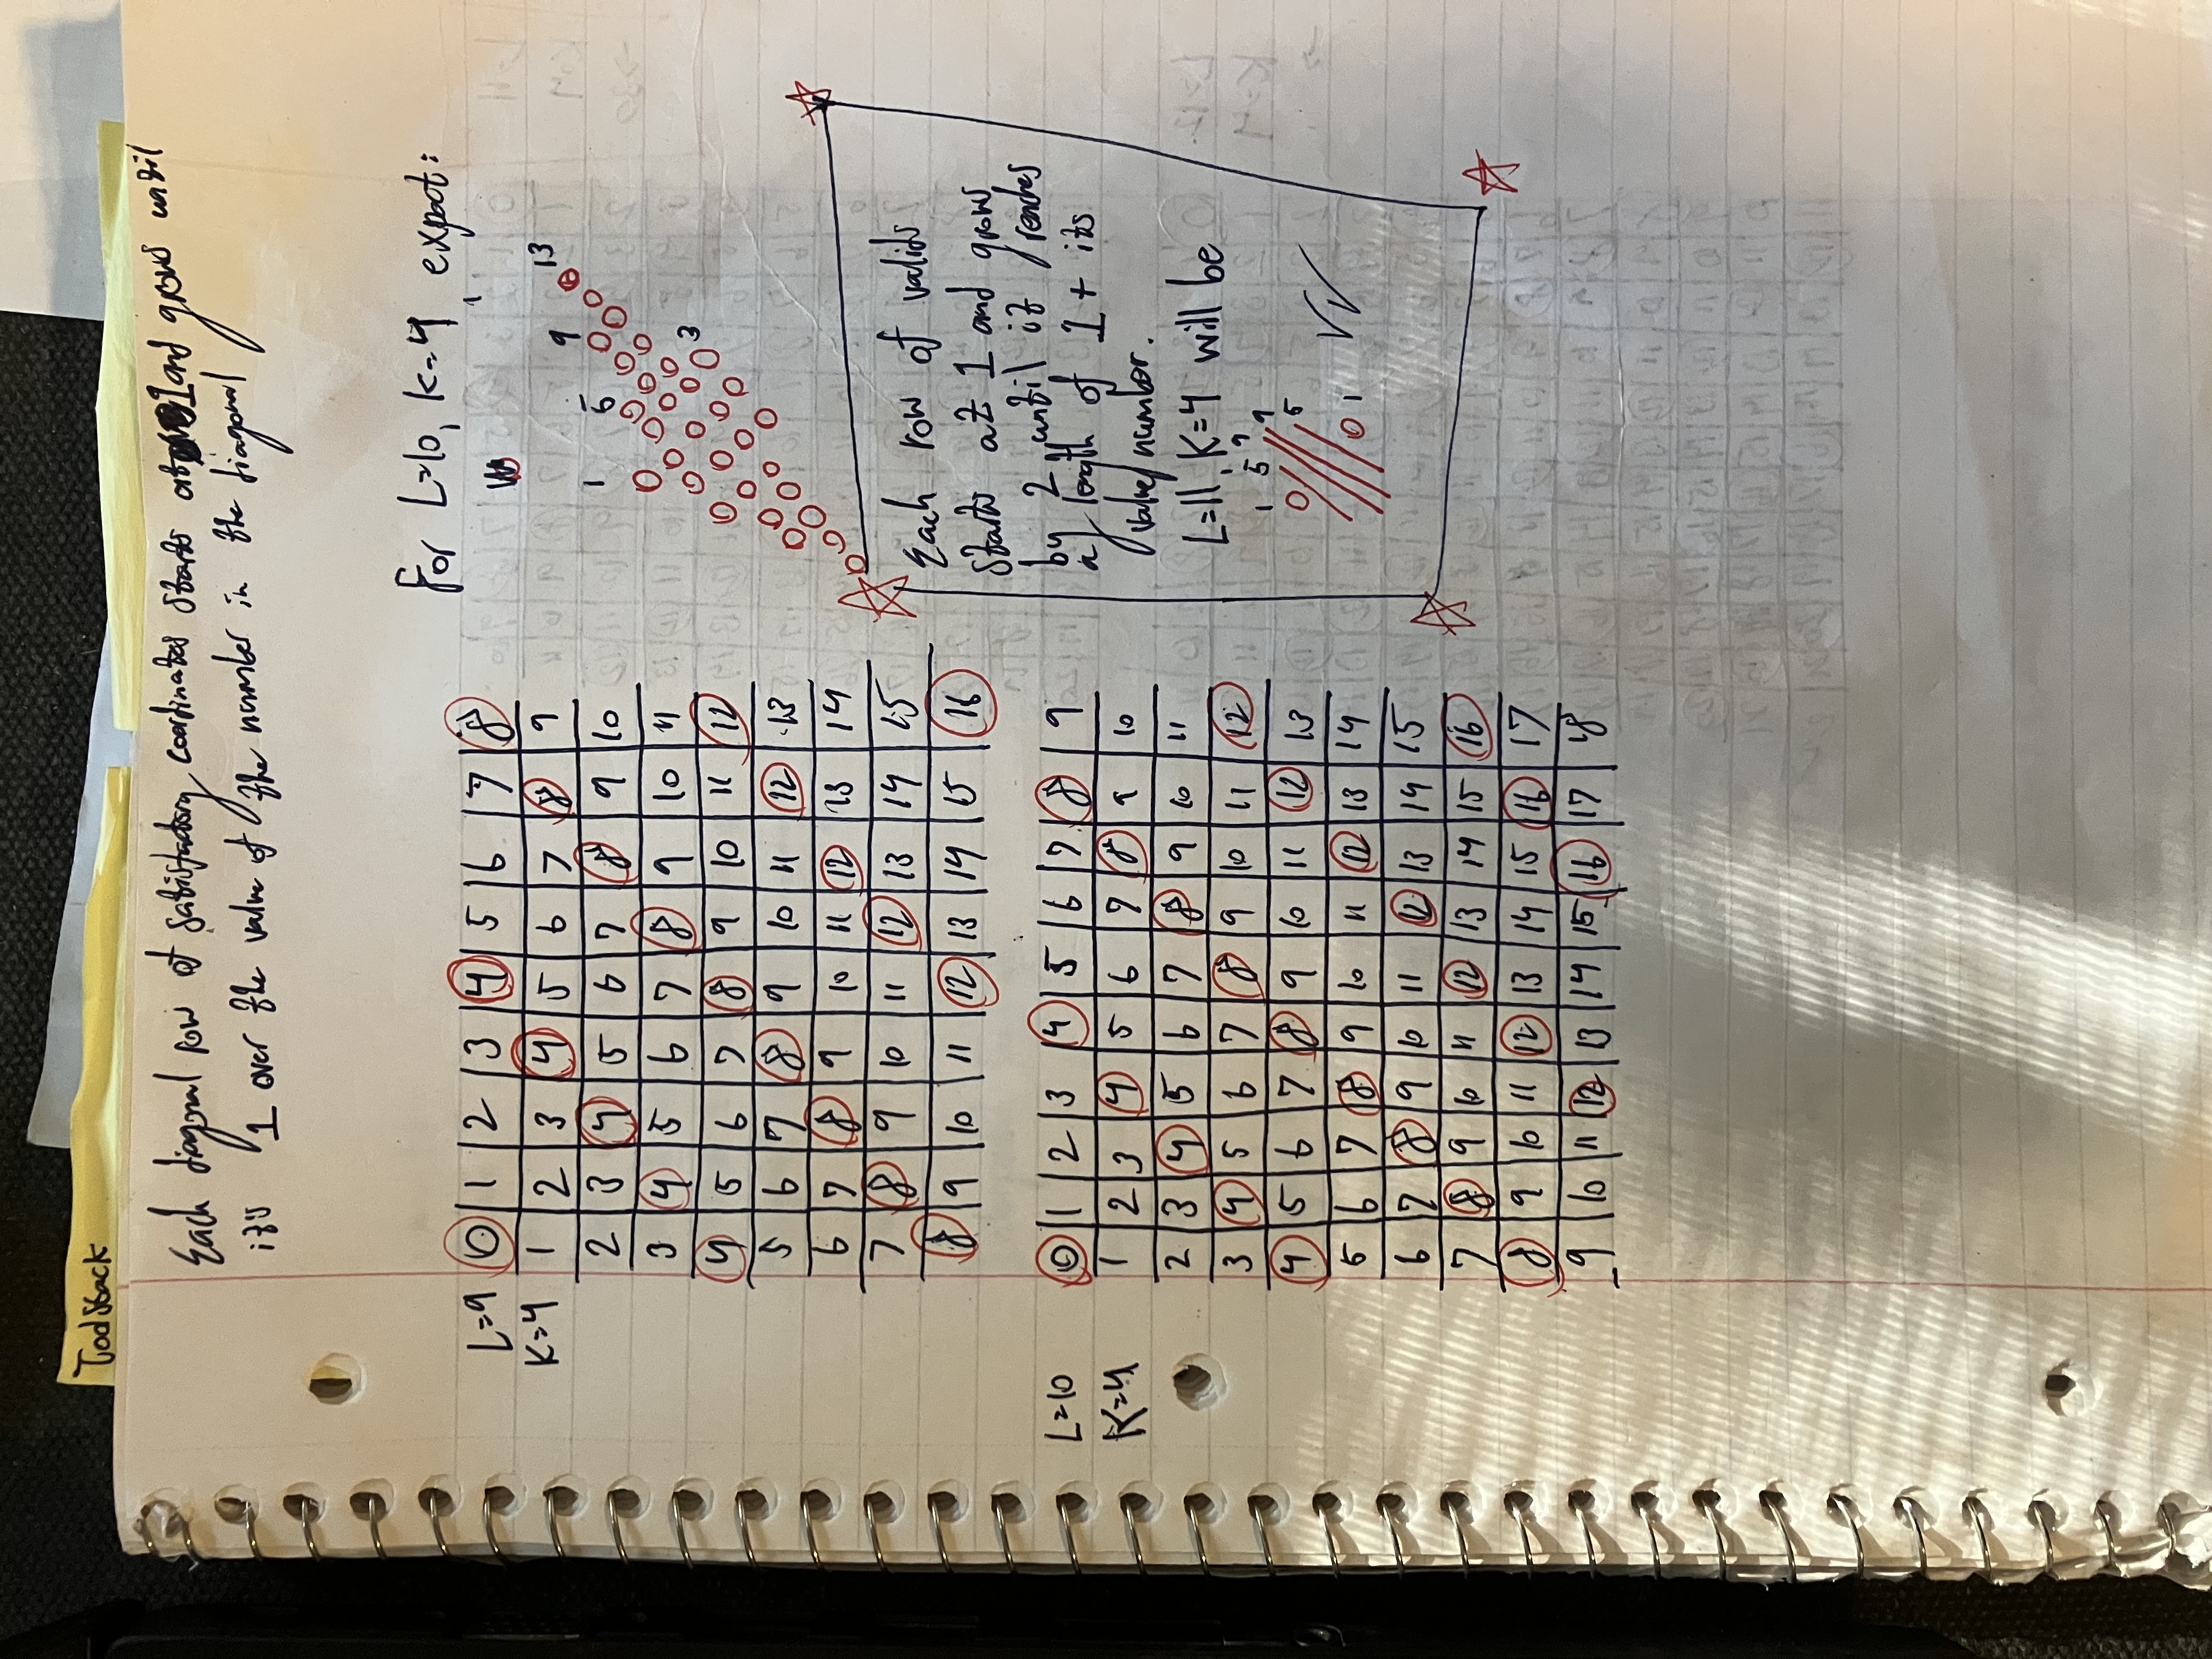 Todstack
Each diagonal row of satisfactory coordinates starts at 1 and grows until
it's 1 over the value of the number in the diagonal
L=9 0 1 2 3 4 5 6 7 8
K=4 1 2 3 4 5 6 7 8 9
2 3 4 5 6 7 8 9 10
3 4 5 6 7 8 9 10 11
4 5 6 7 8 9 10 11 12
5 6 7 8 9 10 11 12 13
6 7 8 9 10 11 12 13 14
7 8 9 10 11 12 13 14 15
8 9 10 11 12 13 14 15 16
L=10 0 1 2 3 4 5 6 7 8 9
K=4 1 2 3 4 5 6 7 8 9 10
2 3 4 5 6 7 8 9 10 11
3 4 5 6 7 8 9 10 11 12
4 5 6 7 8 9 10 11 12 13
5 6 7 8 9 10 11 12 13 14
6 7 8 9 10 11 12 13 14 15
7 8 9 10 11 12 13 14 15 16
8 9 10 11 12 13 14 15 16 17
9 10 11 12 13 14 15 16 17 18
For L=10, K=4, expect:
1 5 9 13
3
Each row of valids
starts at 1 and grows
by 2 until it reaches
a length of 1 + its
value/number.
L=11, K=4 will be
1 5 9 9
5
1